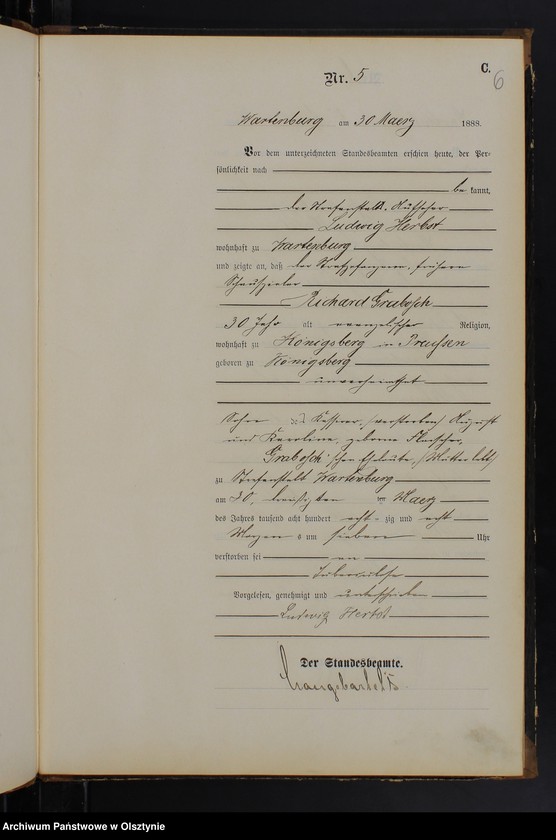 C.
6
Nr. 5
Wartenburg am 30 Maerz 1888.
Vor dem unterzeichneten Standesbeamten erschien heute, der Per-
sönlichkeit nach
be kannt,
der Aufseher
Ludwig Herbst
wohnhaft zu Wartenburg
und zeigte an, daß der frühere
Schauspieler
Richard Grabosch
30 Jahr alt evangelischer Religion,
wohnhaft zu Königsberg in Preussen
geboren zu Königsberg
unverheirathet
Sohn des (verstorben) August
und Karoline, geborne
Grabosch'schen Eheleute, (Mutter lebt)
zu Strafanstalt Wartenburg
am 30, dreißigten Maerz
des Jahres tausend acht hundert acht-zig und acht
Morgens um sieben Uhr
verstorben sei an
Tuberculose
Vorgelesen, genehmigt und unterschrieben
Ludwig Herbst
Der Standesbeamte.
Archiwum Państwowe w Olsztynie